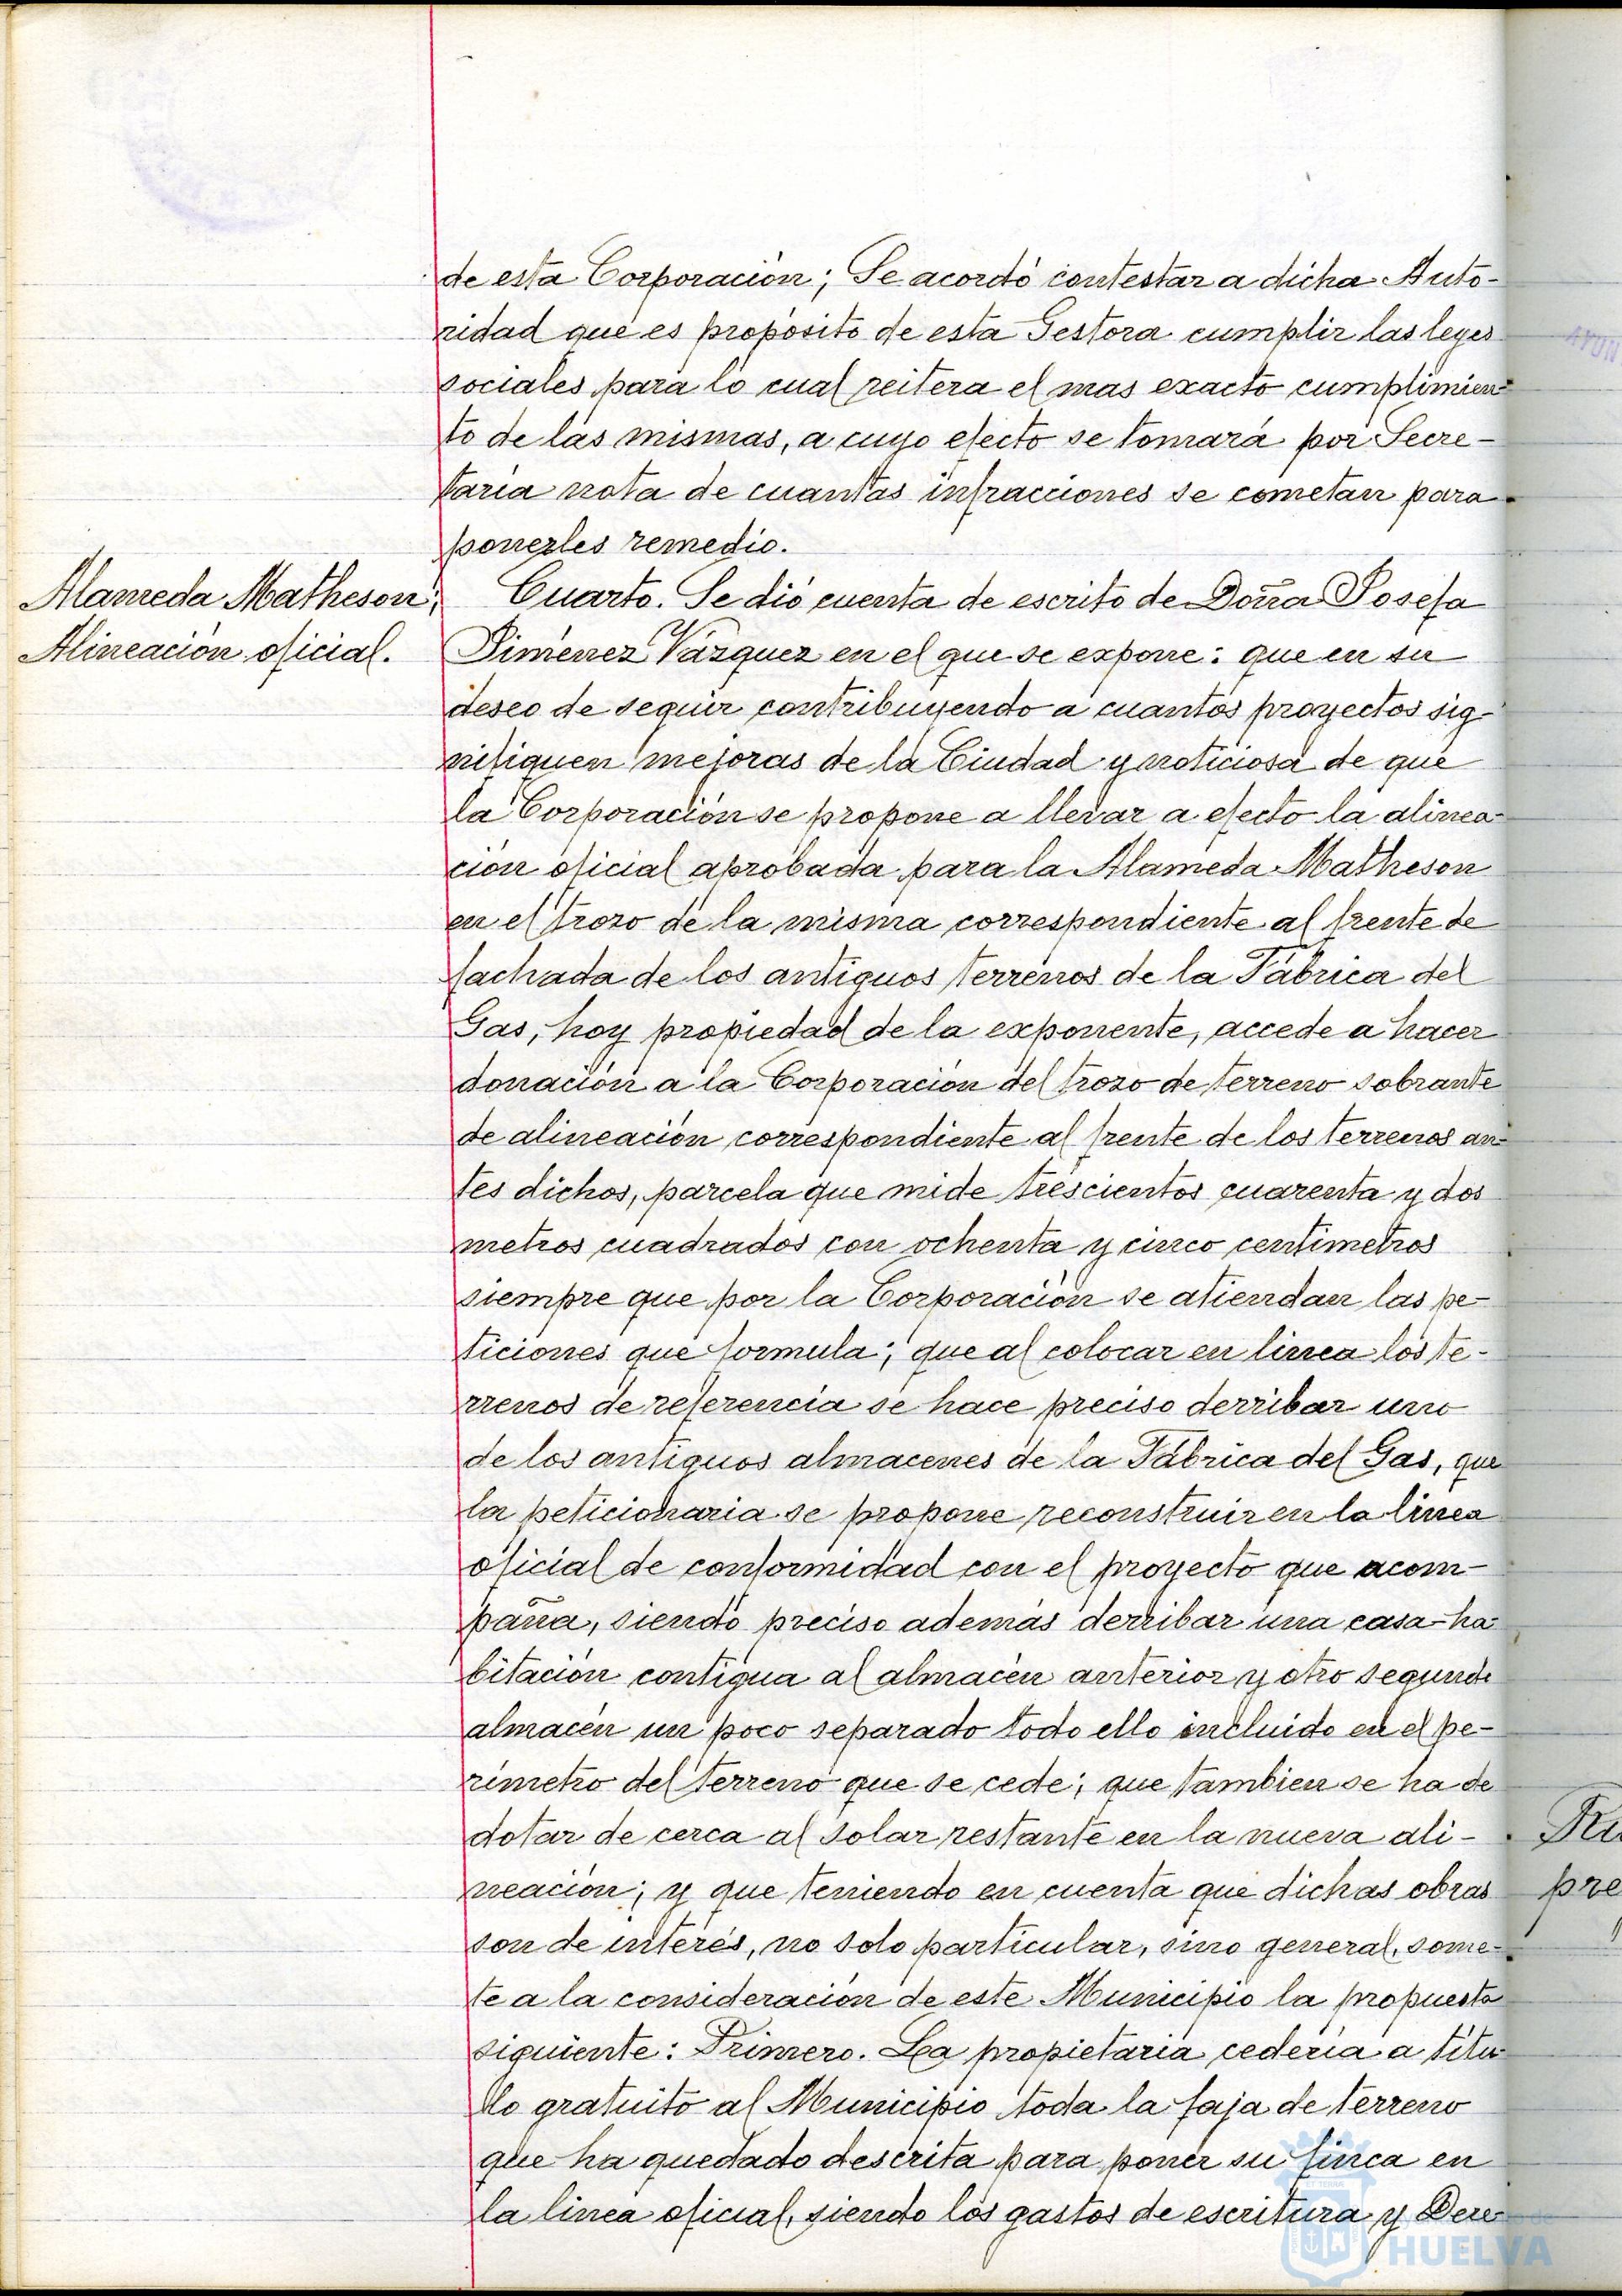 de esta Corporación; Se acordó contestar a dicha Auto-
ridad que es propósito de esta Gestora cumplir las leyes
sociales para lo cual reitera el mas exacto cumplimien-
to de las mismas, a cuyo efecto se tomará por Secre-
taría nota de cuantas infracciones se cometan para
ponerles remedio.
Alameda Matheson;
Alineación oficial.
Cuarto. Se dió cuenta de escrito de Doña Josefa
Jiménez Vázquez en el que se expone: que en su
deseo de seguir contribuyendo a cuantos proyectos sig-
nifiquen mejoras de la Ciudad y noticiosa de que
la Corporación se propone a llevar a efecto la alinea-
ción oficial aprobada para la Alameda Matheson
en el trozo de la misma correspondiente al frente de
fachada de los antiguos terrenos de la Fábrica del
Gas, hoy propiedad de la exponente, accede a hacer
donación a la Corporación del trozo de terreno sobrante
de alineación correspondiente al frente de los terrenos an-
tes dichos, parcela que mide trescientos cuarenta y dos
metros cuadrados con ochenta y cinco centimetros
siempre que por la Corporación se atiendan las pe-
ticiones que formula; que al colocar en linea los te-
rrenos de referencia se hace preciso derribar uno
de los antiguos almacenes de la Fábrica del Gas, que
la peticionaria se propone reconstruir en la linea
oficial de conformidad con el proyecto que acom-
paña, siendo preciso además derribar una casa-ha-
bitación contigua al almacén anterior y otro segundo
almacén un poco separado todo ello incluido en el pe-
rímetro del terreno que se cede; que tambien se ha de
dotar de cerca al solar restante en la nueva ali-
neación; y que teniendo en cuenta que dichas obras
son de interés, no solo particular, sino general, some-
te a la consideración de este Municipio la propuesta
siguiente: Primero. La propietaria cedería a titu-
lo gratuito al Municipio toda la faja de terreno
que ha quedado descrita para poner su finca en
la linea oficial, siendo los gastos de escritura y Dere-
HUELVA